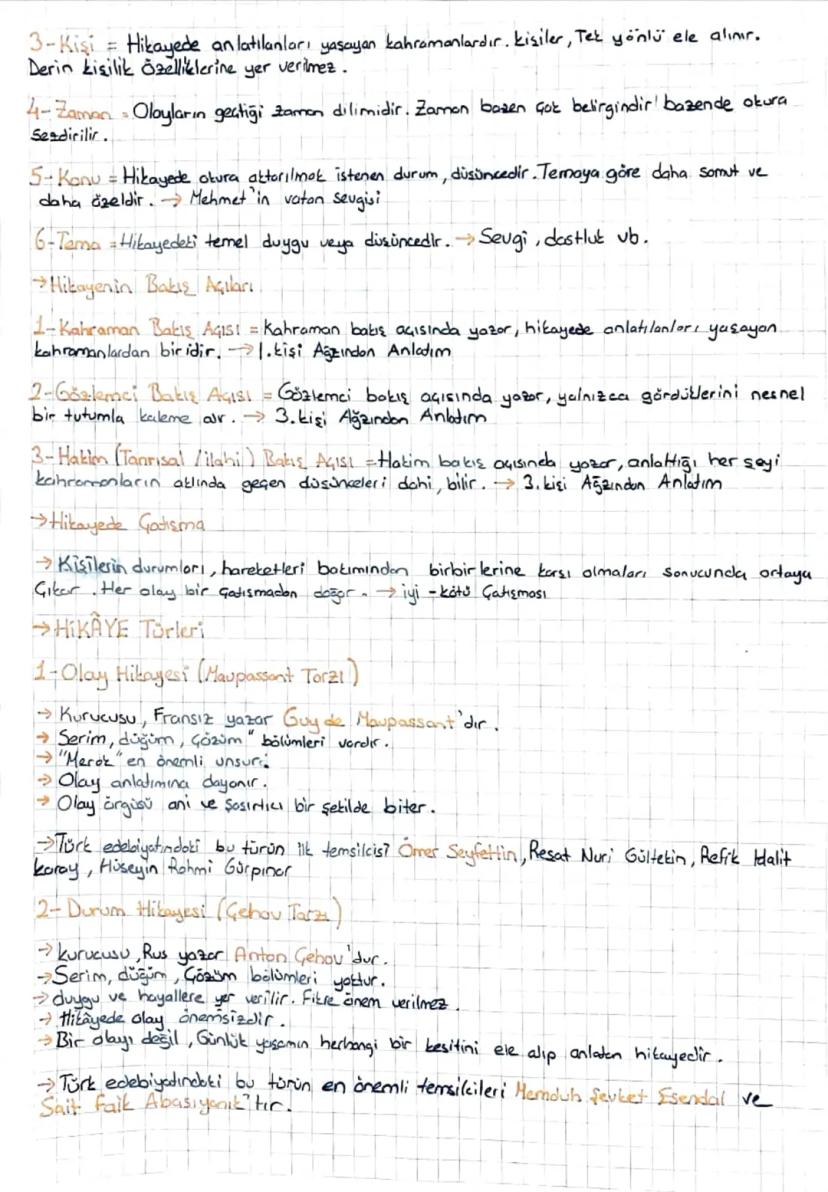 3-Kişi = Hikayede anlatılanları yaşayan kahramanlardır. kişiler, Tek yönlü ele alınır.
Derin kişilik özelliklerine yer verilmez.
4-Zaman = Olayların geçtiği zaman dilimidir. Zaman bazen çok belirgindir bazende okura
sezdirilir.
5-Konu = Hikayede okura aktarılmak istenen durum, düşüncedir. Temaya göre daha somut ve
daha özeldir. → Mehmet'in vatan sevgisi
6-Tema = Hikayedeki temel duygu veya düşüncedir. → Sevgi, dostluk vb.
→Hikayenin Bakış Açıları
1-Kahraman Bakış Açısı = Kahraman bakış açısında yazar, hikayede anlatılanları yaşayan
kahramanlardan biridir. → 1.kişi Ağzından Anlatım
2-Gözlemci Bakış Açısı = Gözlemci bakış açısında yazar, yalnızca gördüklerini nesnel
bir tutumla kaleme alır. → 3.kişi Ağzından Anlatım
3-Hakim (Tanrısal / ilahi) Bakış Açısı = Hakim bakış açısında yazar, anlattığı her şeyi
kahramanların aklında geçen düşünceleri dahi, bilir. → 3.kişi Ağzından Anlatım
→Hikayede Çatışma
→ Kişilerin durumları, hareketleri bakımından birbirlerine karşı olmaları sonucunda ortaya
Çıkar. Her olay bir çatışmadan doğar. → iyi - kötü Çatışması
→HİKÂYE Türleri
1-Olay Hikayesi (Maupassant Tarzı)
→ Kurucusu, Fransız yazar Guy de Maupassant'dır.
→ Serim, düğüm, çözüm" bölümleri vardır.
→ "Merak" en önemli unsuru
→ Olay anlatımına dayanır.
→ Olay örgüsü ani ve şaşırtıcı bir şekilde biter.
→Türk edebiyatındaki bu türün ilk temsilcisi Ömer Seyfettin, Reşat Nuri Gültekin, Refik Halit
karay, Hüseyin Rahmi Gürpınar
2- Durum Hikayesi (Çehov Tarzı)
→ kurucusu, Rus yazar Anton Çehov'dur.
→Serim, düğüm, Çözüm bölümleri yoktur.
→ duygu ve hayallere yer verilir. Fikre önem verilmez.
→ Hikâyede olay önemsizdir.
→ Bir olayı değil, Günlük yaşamın herhangi bir kesitini ele alıp anlatan hikayedir.
→ Türk edebiyatındaki bu türün en önemli temsilcileri Memduh Şevket Esendal ve
Sait Faik Abasıyanık'tır.